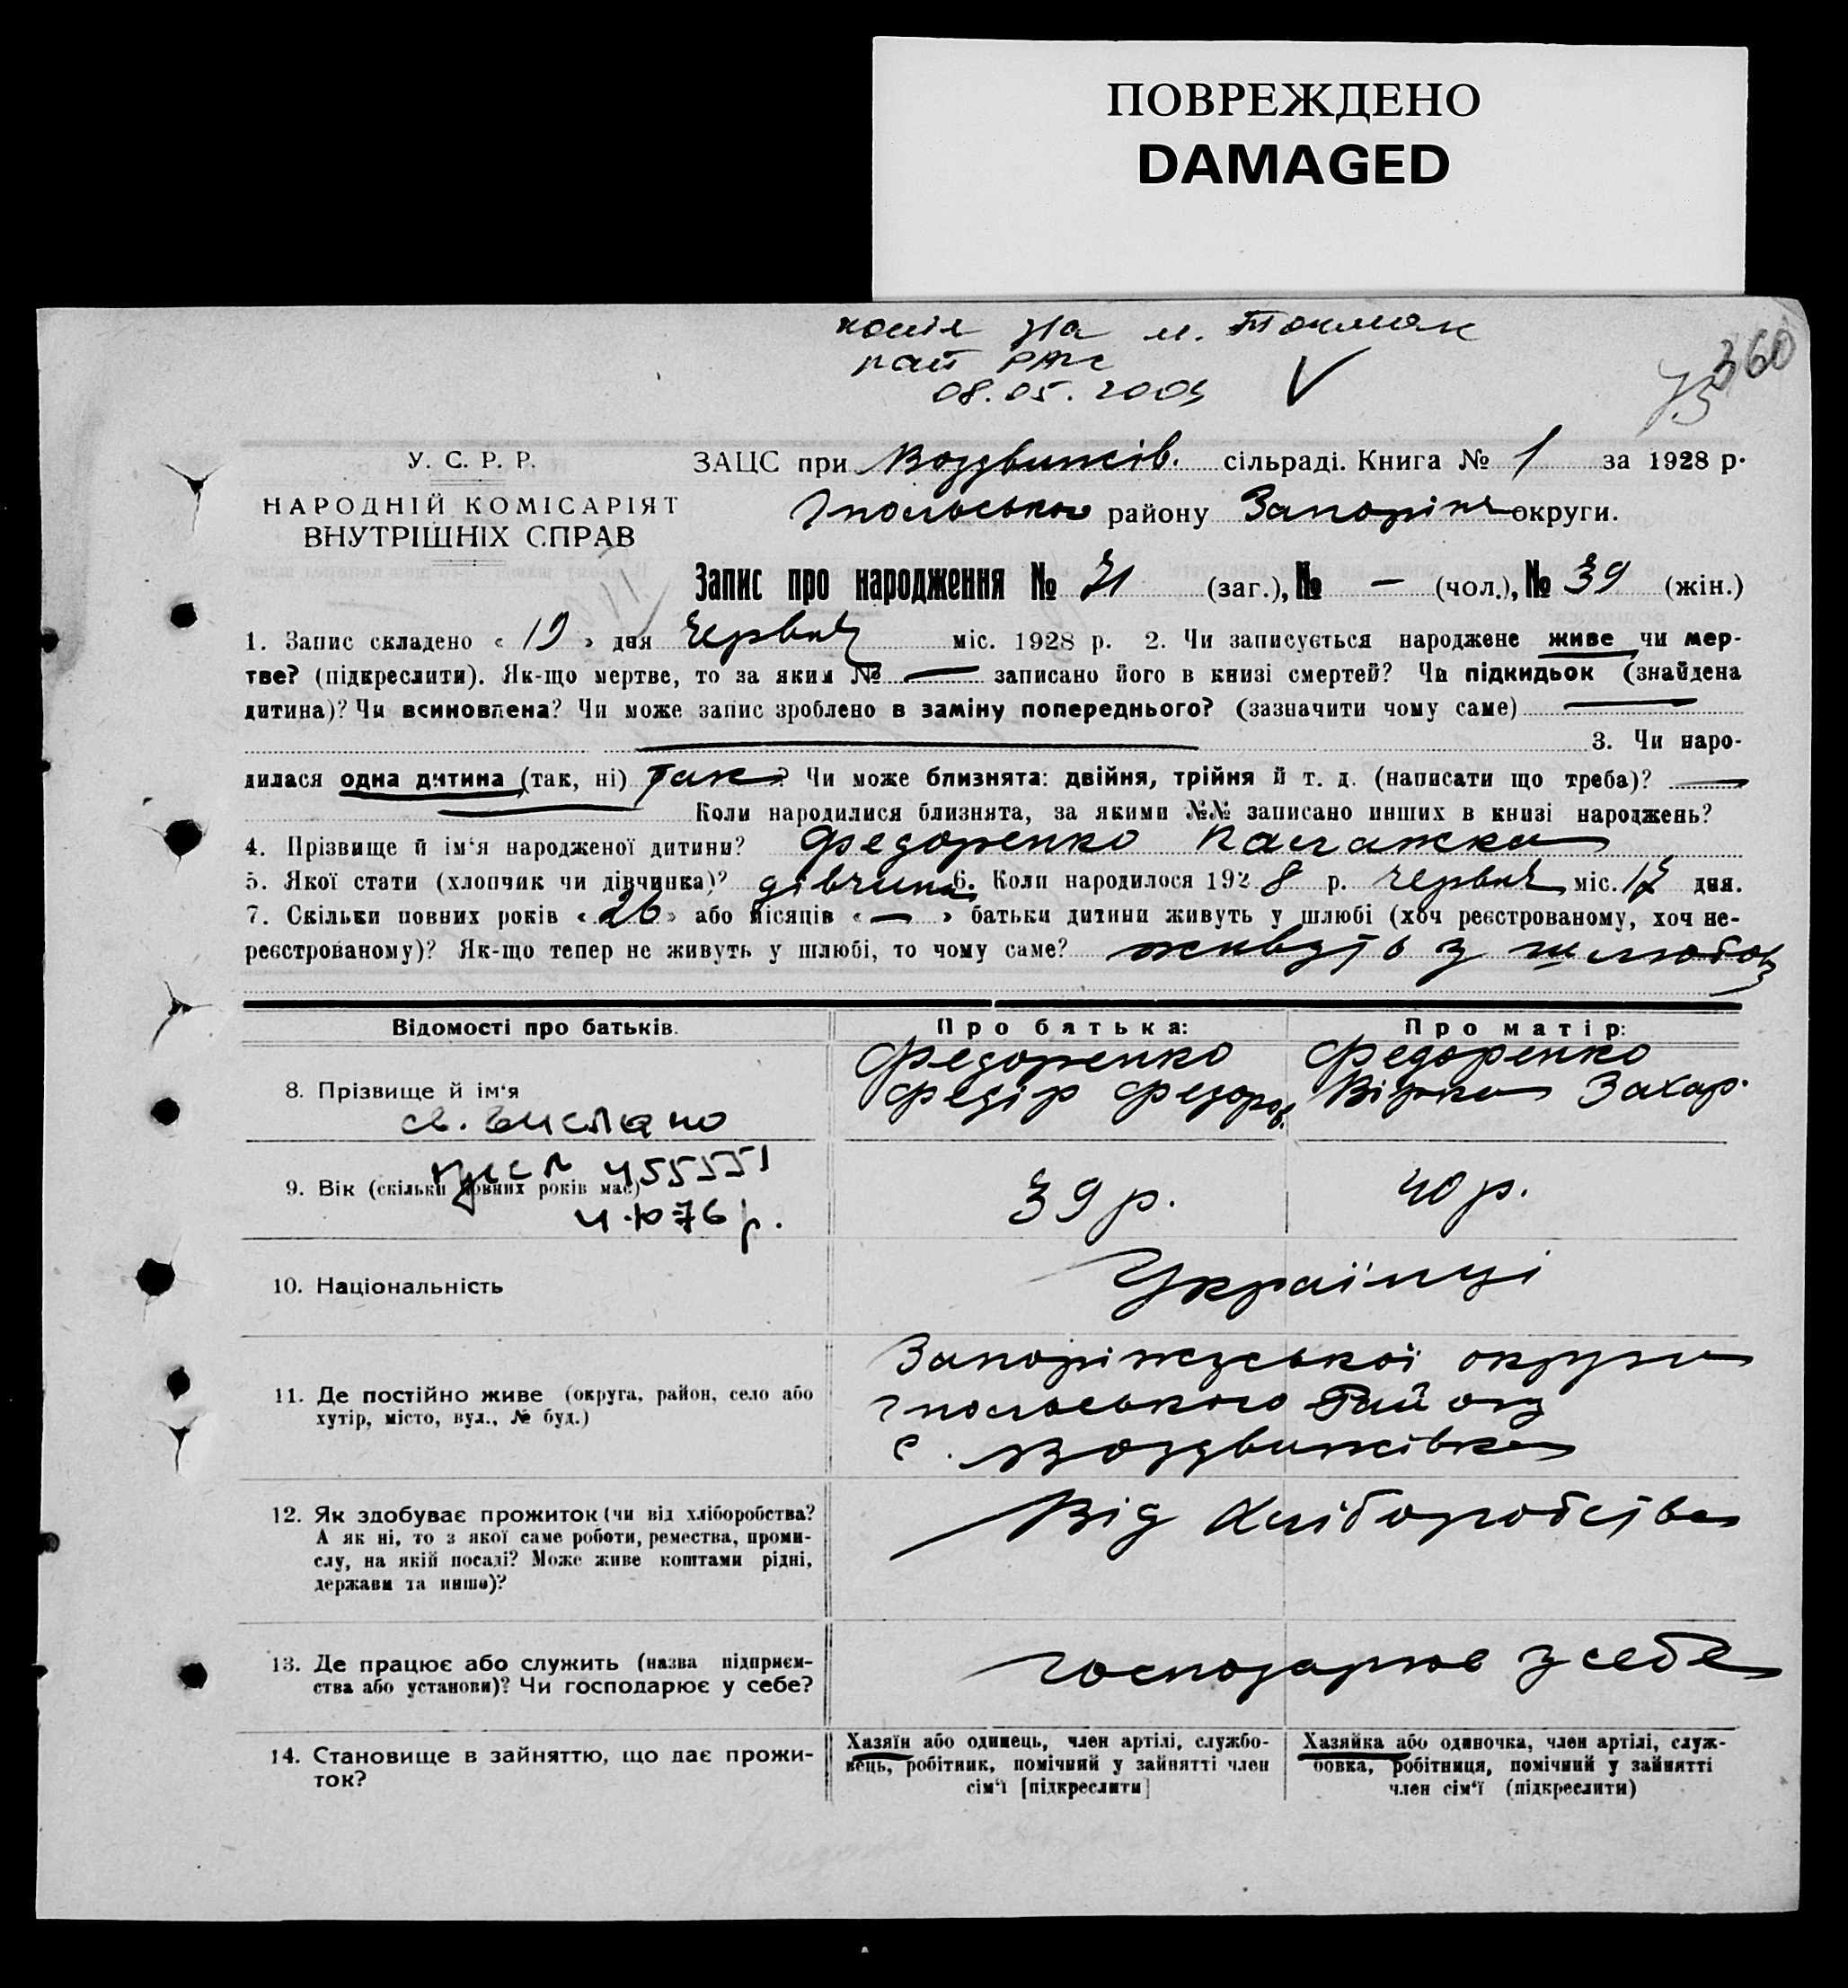 ПОВРЕЖДЕНО
DAMAGED
копія на м. Токмак
рай РАГС
08.05.2003 V
360
75
У. С. Р. Р.
НАРОДНІЙ КОМІСАРІЯТ
ВНУТРІШНІХ СПРАВ
ЗАЦС при Воздвижів. сільраді. Книга № 1 за 1928 р.
Гпольського району Запоріж округи.
Запис про народження № 71 (заг.), № — (чол.), № 39 (жін.)
1. Запис складено « 19 » дня Червня міс. 1928 р. 2. Чи записується народжене живе чи мер-
тве? (підкреслити). Як-що мертве, то за яким № — записано його в книзі смертей? Чи підкидьок (знайдена
дитина)? Чи всиновлена? Чи може запис зроблено в заміну попереднього? (зазначити чому саме) —
— 3. Чи наро-
дилася одна дитина (так, ні) Так? Чи може близнята: двійня, трійня й т. д. (написати що треба)? —
— Коли народилися близнята, за якими №№ записано инших в книзі народжень?
4. Прізвище й ім'я народженої дитини? Федоренко Палажка
5. Якої стати (хлопчик чи дівчинка)? дівчина 6. Коли народилося 1928 р. Червня міс. 17 дня.
7. Скільки повних років « 26 » або місяців « — » батьки дитини живуть у шлюбі (хоч реєстрованому, хоч не-
реєстрованому)? Як-що тепер не живуть у шлюбі, то чому саме? живуть у шлюбові
Відомості про батьків. Про батька: Про матір:
8. Прізвище й ім'я
Федоренко
Федір Федоров.
Федоренко
Вірка Захар.
св. вислано
9. Вік (скільки повних років має)
455551
39 р. 40 р.
10. Національність
Українці
11. Де постійно живе (округа, район, село або
хутір, місто, вул., № буд.)
Запоріжзської округи
Гпольського Району
с. Воздвижівка
12. Як здобуває прожиток (чи від хліборобства?
А як ні, то з якої саме роботи, ремества, проми-
слу, на якій посаді? Може живе коштами рідні,
держави та инше)?
Від Хліборобства
13. Де працює або служить (назва підприєм-
ства або установи)? Чи господарює у себе?
господарює у себе
14. Становище в зайняттю, що дає прожи-
ток?
Хазяїн або одинець, член артілі, службо-
вець, робітник, помічний у зайнятті член
сім'ї [підкреслити]
Хазяйка або одиночка, член артілі, служ-
бовка, робітниця, помічний у зайнятті
член сім'ї (підкреслити)